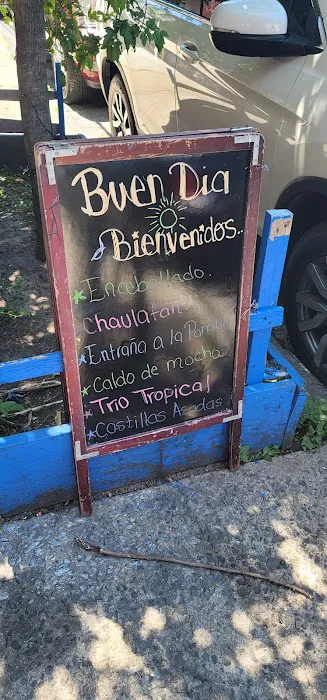 Buen Dia
Bienvenidos..
Encebollado.
Chaulafan
Entraña a la Parrilla
Caldo de mocho
Trio Tropical
Costillas Asadas